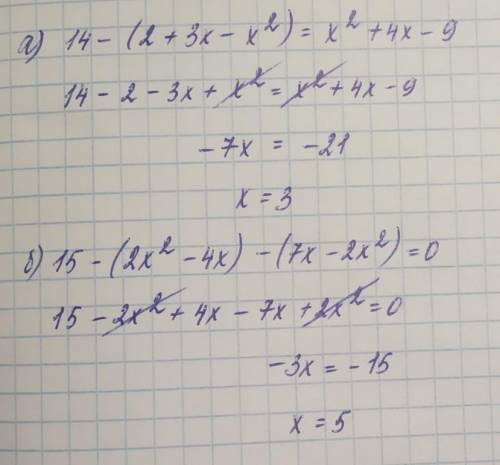 а) 14 - (2 + 3x - x²) = x² + 4x - 9
14 - 2 - 3x + x² = x² + 4x - 9
-7x = -21
x = 3
б) 15 - (2x² - 4x) - (7x - 2x²) = 0
15 - 2x² + 4x - 7x + 2x² = 0
-3x = -15
x = 5